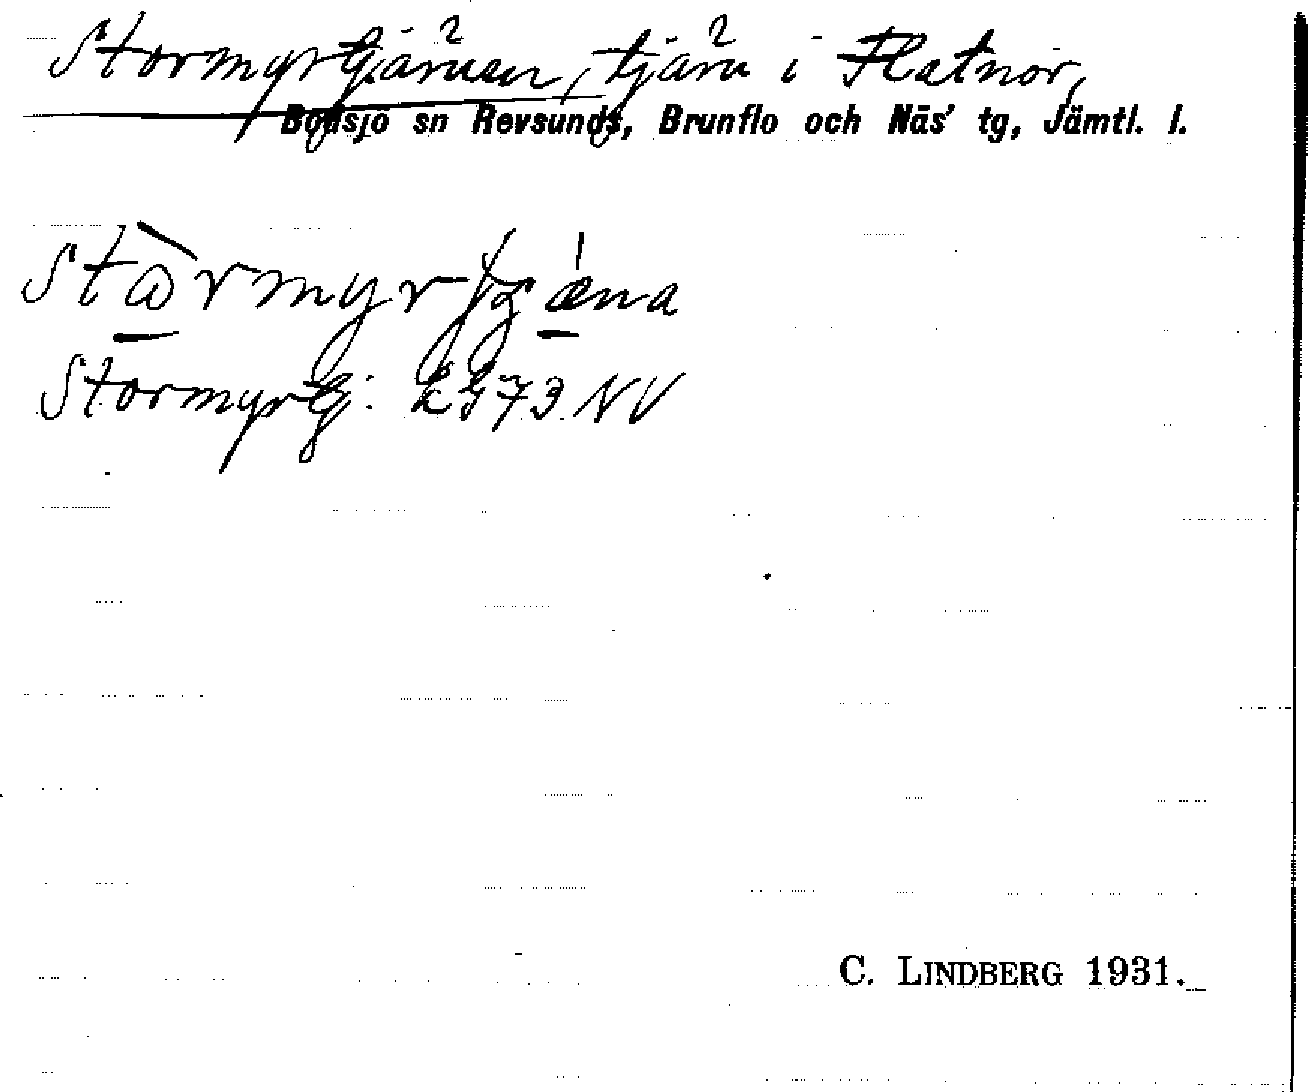 Stormyrtjärnen, tjärn i Flatnor,
Bodsjö sn Revsunds, Brunflo och Näs' tg, Jämtl. l.
Stormyrtj. 73 NV
C. LINDBERG 1931.